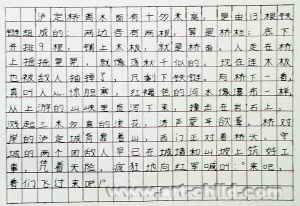 泸定桥离水面有十多米高，是由13根铁
链组成的：两边各有两根，算是桥栏；底下
并排9根，铺上木板，就是桥面。人走在桥
上摇摇晃晃，就像荡秋千似的，现在连木板
也被敌人抽掉了，只剩下铁链。向桥下一看，
真叫人心惊胆寒，红褐色的河水像瀑布一样，
从上游的山峡里直泻下来，撞击在岩石上，
溅起三米多高的浪花，涛声震耳欲聋。桥对
岸的泸定城背靠着山，西门正对着桥头。守
城的两个团敌人早已在城墙和山坡上筑好工
事，凭着天险，疯狂地向红军喊叫：“来吧，
看你们飞过来吧！”
www.art-child.com